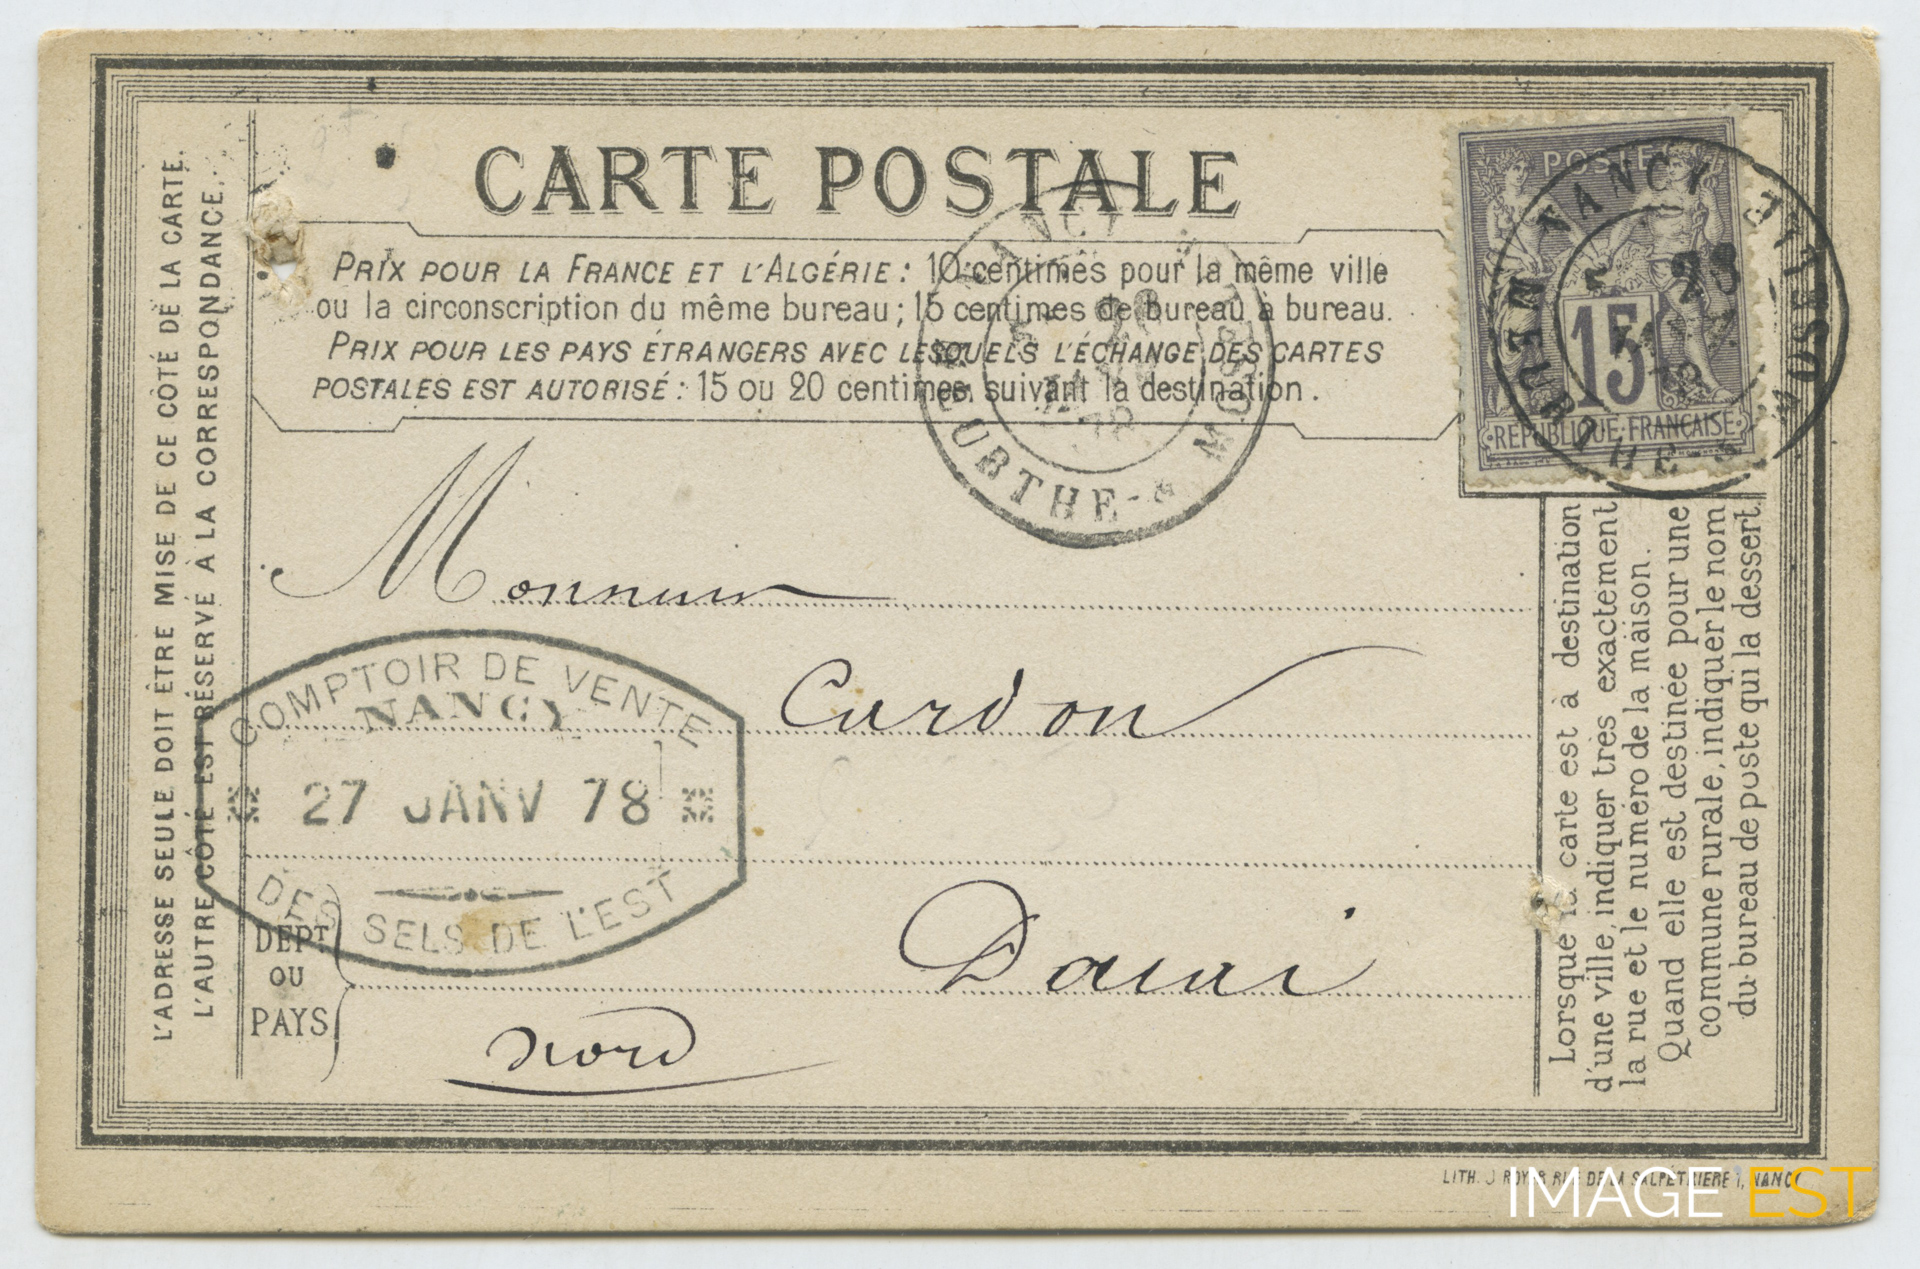 CARTE POSTALE
PRIX POUR LA FRANCE ET L'ALGÉRIE : 10 centimes pour la même ville
ou la circonscription du même bureau ; 15 centimes de bureau à bureau.
PRIX POUR LES PAYS ÉTRANGERS AVEC LESQUELS L'ÉCHANGE DES CARTES
POSTALES EST AUTORISÉ : 15 ou 20 centimes, suivant la destination.
L'ADRESSE SEULE DOIT ÊTRE MISE DE CE CÔTÉ DE LA CARTE.
L'AUTRE CÔTÉ EST RÉSERVÉ À LA CORRESPONDANCE.
POSTE
15
RÉPUBLIQUE FRANÇAISE
NANCY
MEURTHE-&-MOSELLE
78
NANCY
MEURTHE-& MOSELLE
78
Monsieur
Cardon
Douai
DÉPT
OU
PAYS
Nord
COMPTOIR DE VENTE
NANCY
27 JANV 78
DES SELS DE L'EST
Lorsque la carte est à destination
d'une ville, indiquer très exactement
la rue et le numéro de la maison.
Quand elle est destinée pour une
commune rurale, indiquer le nom
du bureau de poste qui la dessert.
LITH. J ROYER RUE DE LA SALPÊTRIÈRE 1, NANCY
IMAGE EST